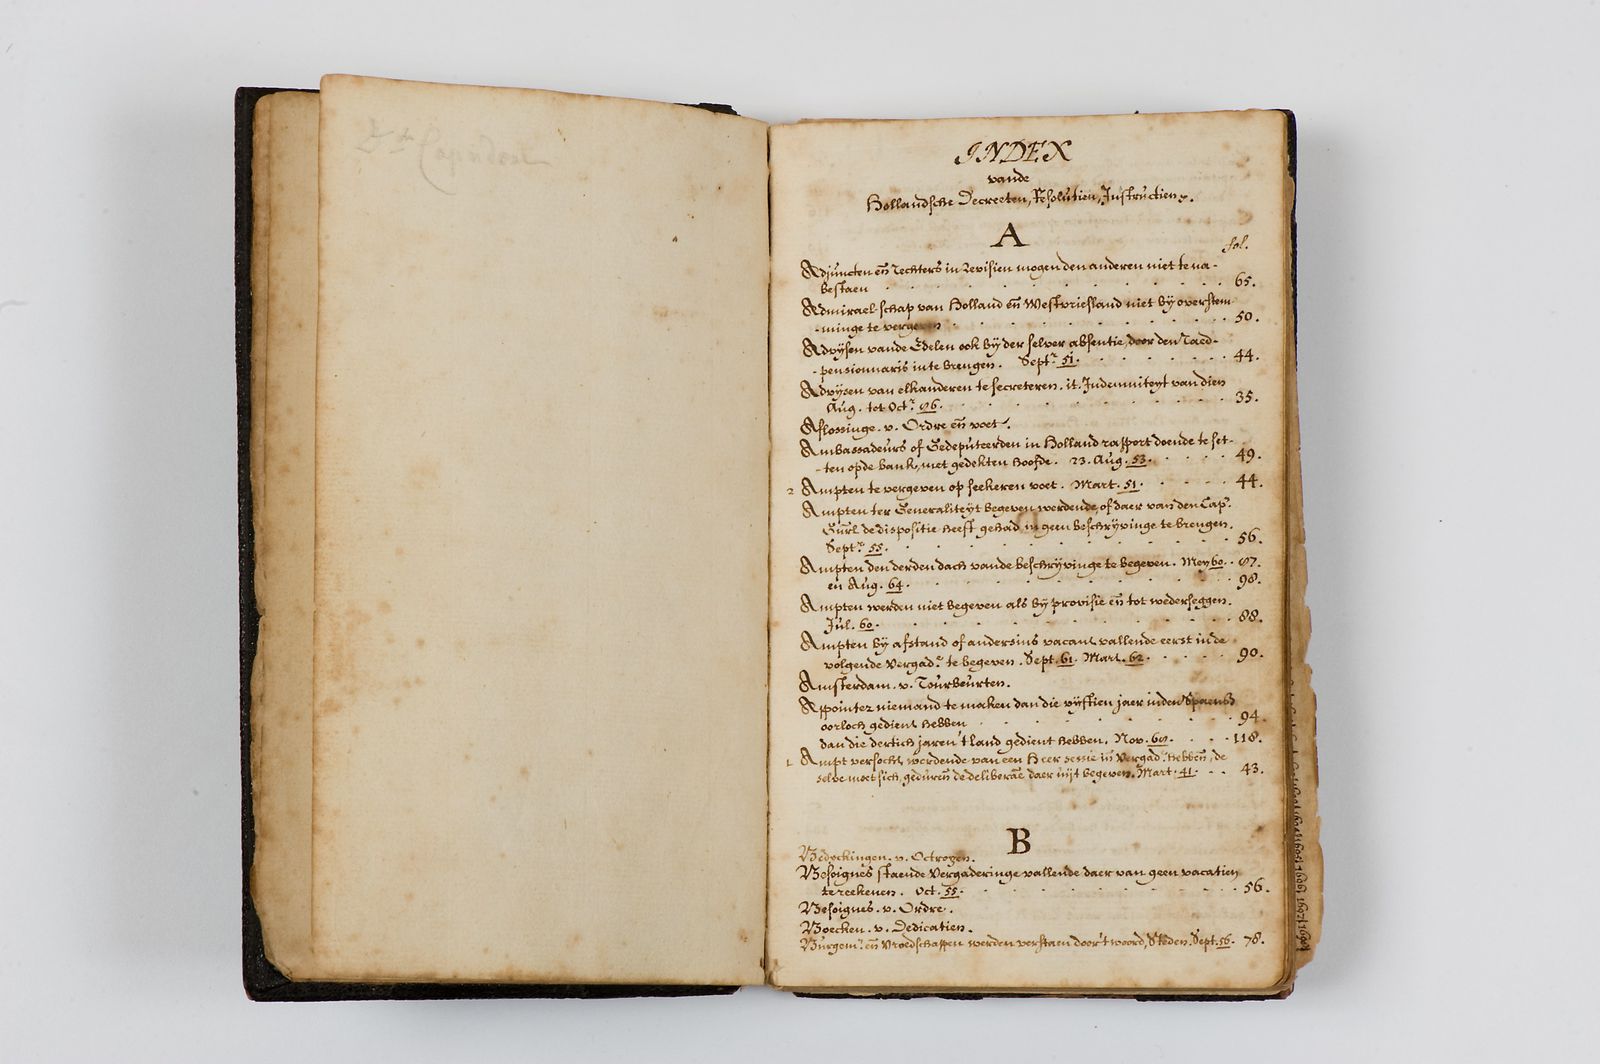 INDEX
vande
Hollandsche Decreeten, Resolutien, Instructien.
A
fol.
Adjuncten eñ Rechters in Revisien mogen den anderen niet te na-
bestaen 65.
Admirael-schap van Holland eñ Westvriesland niet by overstem-
-minge te vergeven 50.
Advysen vande Edelen ook by der selver absentie, door den Raed-
-pensionnaris in te brengen. Septr. 51. 44.
Advysen van elkanderen te secreteren. it. Indemniteyt van dien
Aug. tot Octr. 35.
Aflossinge. v. Ordre eñ voet.
Ambassadeurs of Gedeputeerden in Holland rapport doende te set-
-ten op de bank, met gedekten hoofde. 23. Aug. 53. 49.
2 Ampten te vergeven op seekeren voet. Mart. 51. 44.
Ampten ter Generaliteyt begeven werdende, of daer van den Cap.
de dispositie heeft gehad, in geen beschryvinge te brengen.
Septr. 55. 56.
Ampten den derden dach vande beschryvinge te begeven. Mey 60. 87.
en Aug. 64. 98.
Ampten werden niet begeven als by provisie eñ tot wederseggen.
Jul. 60. 88.
Ampten by afstand of andersins vacant vallende eerst in de
volgende Vergade. te begeven. Sept. 61. Mart. 62. 90.
Amsterdam. v. Tourbeurten.
Appointez niemand te maken dan die vyftien jaer inden Spaensch
oorloch gedient hebben 94.
dan die dertich jaren 't land gedient hebben. Nov. 118.
1 Ampt versocht werdende van een Heer sessie in Vergad. hebben, de
selve moet sich, geduren de deliberãe daer uyt begeven. Mart. 41. 43.
B
Bedyckingen. v. Octroyen.
Besoignes staende Vergaderinge vallende daer van geen vacatien
te reekenen. Oct. 55. 56.
Besoignes. v. Ordre.
Boecken. v. Dedicatien.
Burgemr. eñ Vroedschappen werden verstaen door 't woord, Steden. Sept. 56. 78.